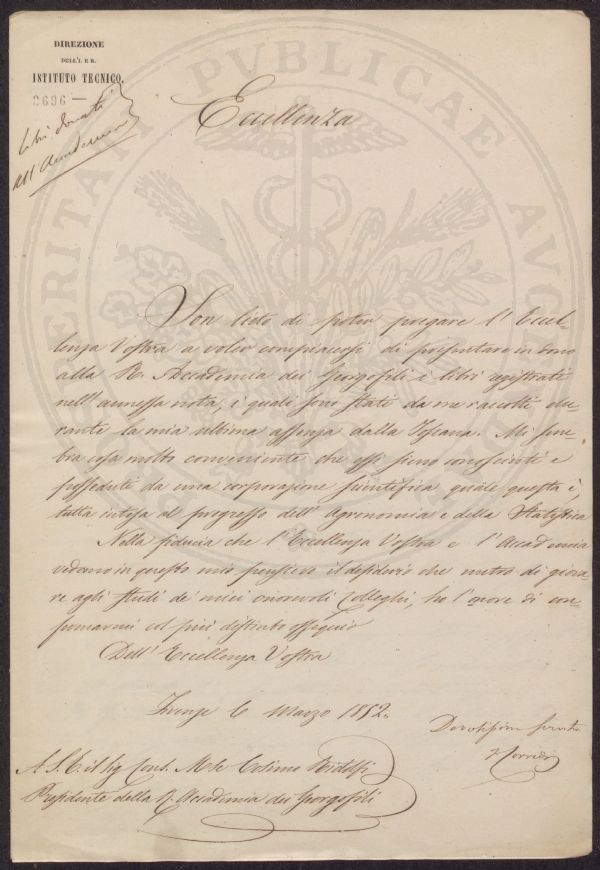 DIREZIONE
DELL'I. E R.
ISTITUTO TECNICO.
2696
Libri donati
all'Accademia
PVBLICAE
Eccellenza
Son lieto di poter pregare l'Eccel-
lenza Vostra a voler compiacersi di presentare in dono
alla R. Accademia dei Georgofili i libri registrati
nell'annessa nota, i quali sono stati da me raccolti du-
rante la mia ultima assenza dalla Toscana. Mi sem-
bra cosa molto conveniente che essi sieno conosciuti e
posseduti da una corporazione scientifica quale questa è,
tutta intesa al progresso dell'Agronomia e della Statistica
Nella fiducia che l'Eccellenza Vostra e l'Accademia
vedranno in questo mio pensiero il desiderio che nutro di giova-
re agli studi de' miei onorevoli Colleghi, ho l'onore di con-
fermarmi col più distinto ossequio
Dell'Eccellenza Vostra
Firenze 6 Marzo 1852.
Corridi
A S. E. il Sig Cons. Mse Cosimo Ridolfi
Presidente della R. Accademia dei Georgofili